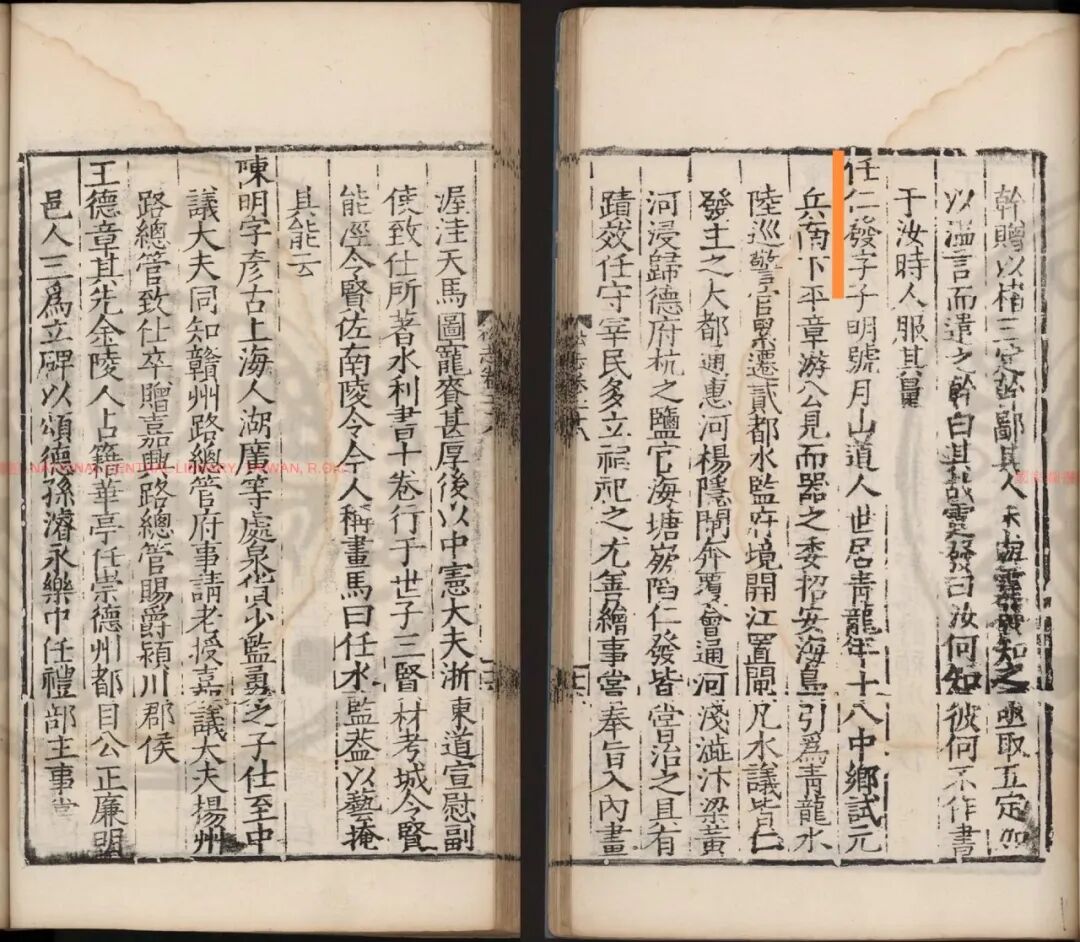 幹贈以楮三定皆鄙其人
知之亟取五定
以溫言而遣之幹白其
發曰汝何知彼何不作書
于汝時人服其量
任仁發字子明號月山道人世居青龍年十八中鄉試元
兵南下平章游公見而器之委招安海島引爲青龍水
陸巡警官累遷貳都水監府境開江置閘凡水議皆仁
發主之大都通惠河楊隱閘奔覆會通河淺澁汴梁黃
河浸歸德府杭之鹽官海塘崩陷仁發皆嘗治之具有
蹟效任守宰民多立祠祀之尤善繪事嘗奉旨入內畫
渥洼天馬圖寵賚甚厚後以中憲大夫浙東道宣慰副
使致仕所著水利書十卷行于世子三賢材考城令賢
能涇令賢佐南陵令今人稱畫馬曰任水監葢以藝掩
其能云
陳明字彥古上海人湖廣等處泉貨少監勇之子仕至中
議大夫同知贛州路總管府事請老授嘉議大夫揚州
路總管致仕卒贈嘉興路總管賜爵潁川郡侯
王德章其先金陵人占籍華亭任崇德州都目公正廉明
邑人三爲立碑以頌德孫濬永樂中任禮部主事
NATIONAL CENTRAL LIBRARY, TAIWAN, R.O.C